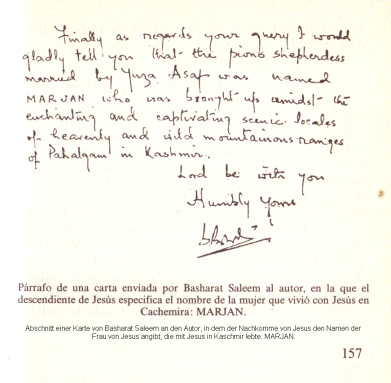 Finally as regards your query I would
gladly tell you that the pious shepherdess
married by Yuza Asaf was named
MARJAN who was brought up amidst the
enchanting and captivating scenic locales
of heavenly and wild mountainous ranges
of Pahalgam in Kashmir.
Lord be with you
Humbly Yours
Párrafo de una carta enviada por Basharat Saleem al autor, en la que el
descendiente de Jesús especifica el nombre de la mujer que vivió con Jesús en
Cachemira: MARJAN.
Abschnitt einer Karte von Basharat Saleem an den Autor, in dem der Nachkomme von Jesus den Namen der
Frau von Jesus angibt, die mit Jesus in Kaschmir lebte: MARJAN.
157